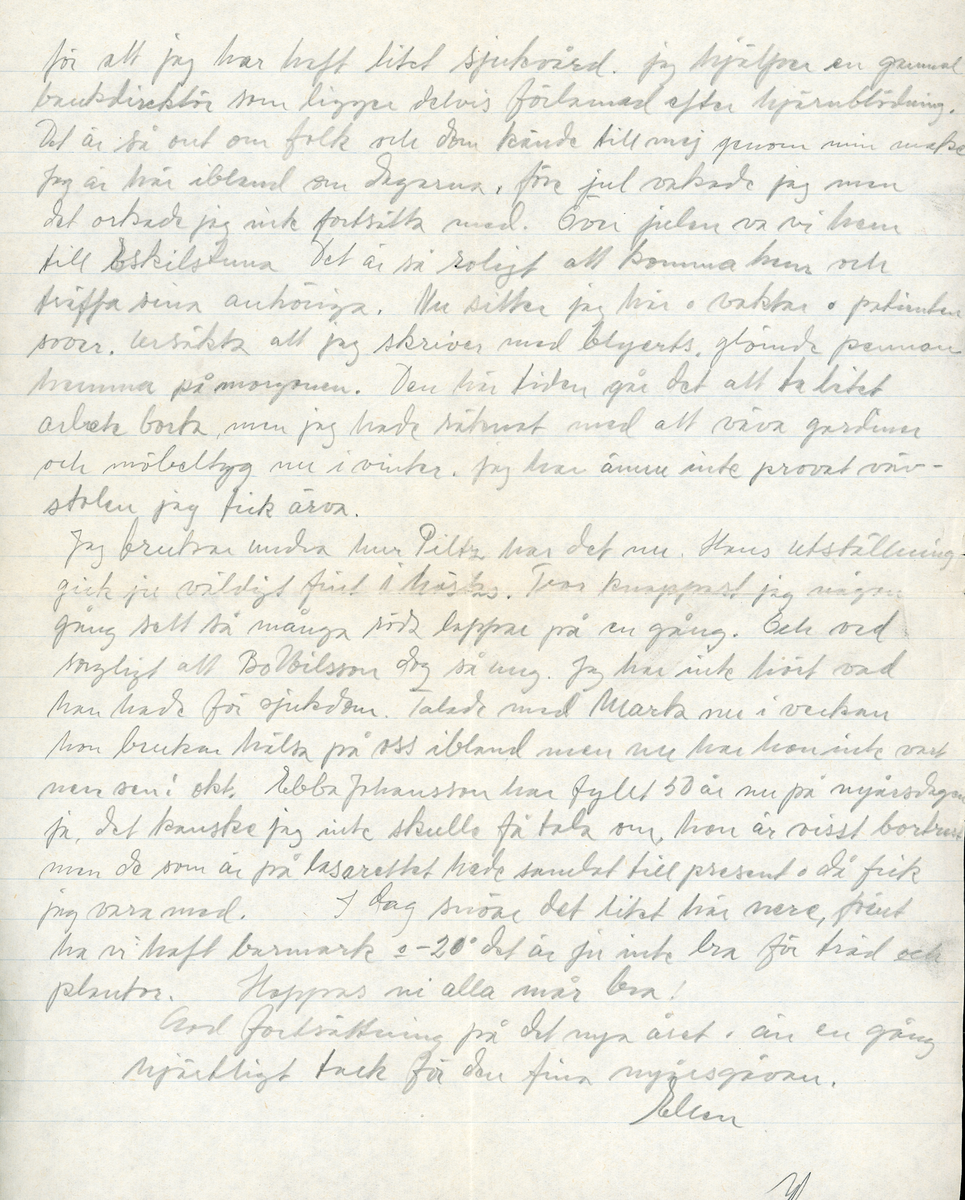 för att jag har haft litet sjukvård. jag hjälper en gammal
bankdirektör som ligger delvis förlamad efter hjärnblödning.
Det är så ont om folk och dom kände till mig genom min make
Jag är här ibland om dagarna, före jul vakade jag men
det orkade jag inte fortsätta med. Över julen va vi hem
till Eskilstuna Det är så roligt att komma hem och
träffa sina anhöriga. Nu sitter jag här o vaktar o patienten
sover. Ursäkta att jag skriver med blyerts, glömde pennan
hemma på morgonen. Den här tiden går det att ta litet
arbete borta, men jag hade räknat med att väva gardiner
och möbeltyg nu i vinter. jag har ännu inte provat väv-
stolen jag fick ärva.
Jag brukar undra hur Piltz har det nu. Hans utställning
gick ju väldigt fint i höstas. Tror knappast jag någon
gång sett så många röda lappar på en gång. Och vad
sorgligt att Bo Nilsson dog så ung. Jag har inte hört vad
han hade för sjukdom. Talade med Marta nu i veckan
hon brukar hälsa på oss ibland men nu har hon inte vart
ner sen i okt. Ebba Johansson har fyllt 50 år nu på nyårsdagen
ja, det kanske jag inte skulle få tala om, hon är visst bortrest
men de som är på lasarettet hade samlat till present o då fick
jag vara med. I dag snöar det litet här nere, förut
ha vi haft barmark o -20° det är ju inte bra för träd och
plantor. Hoppas ni alla mår bra!
God fortsättning på det nya året o än en gång
hjärtligt tack för den fina nyårsgåvan.
Ellen